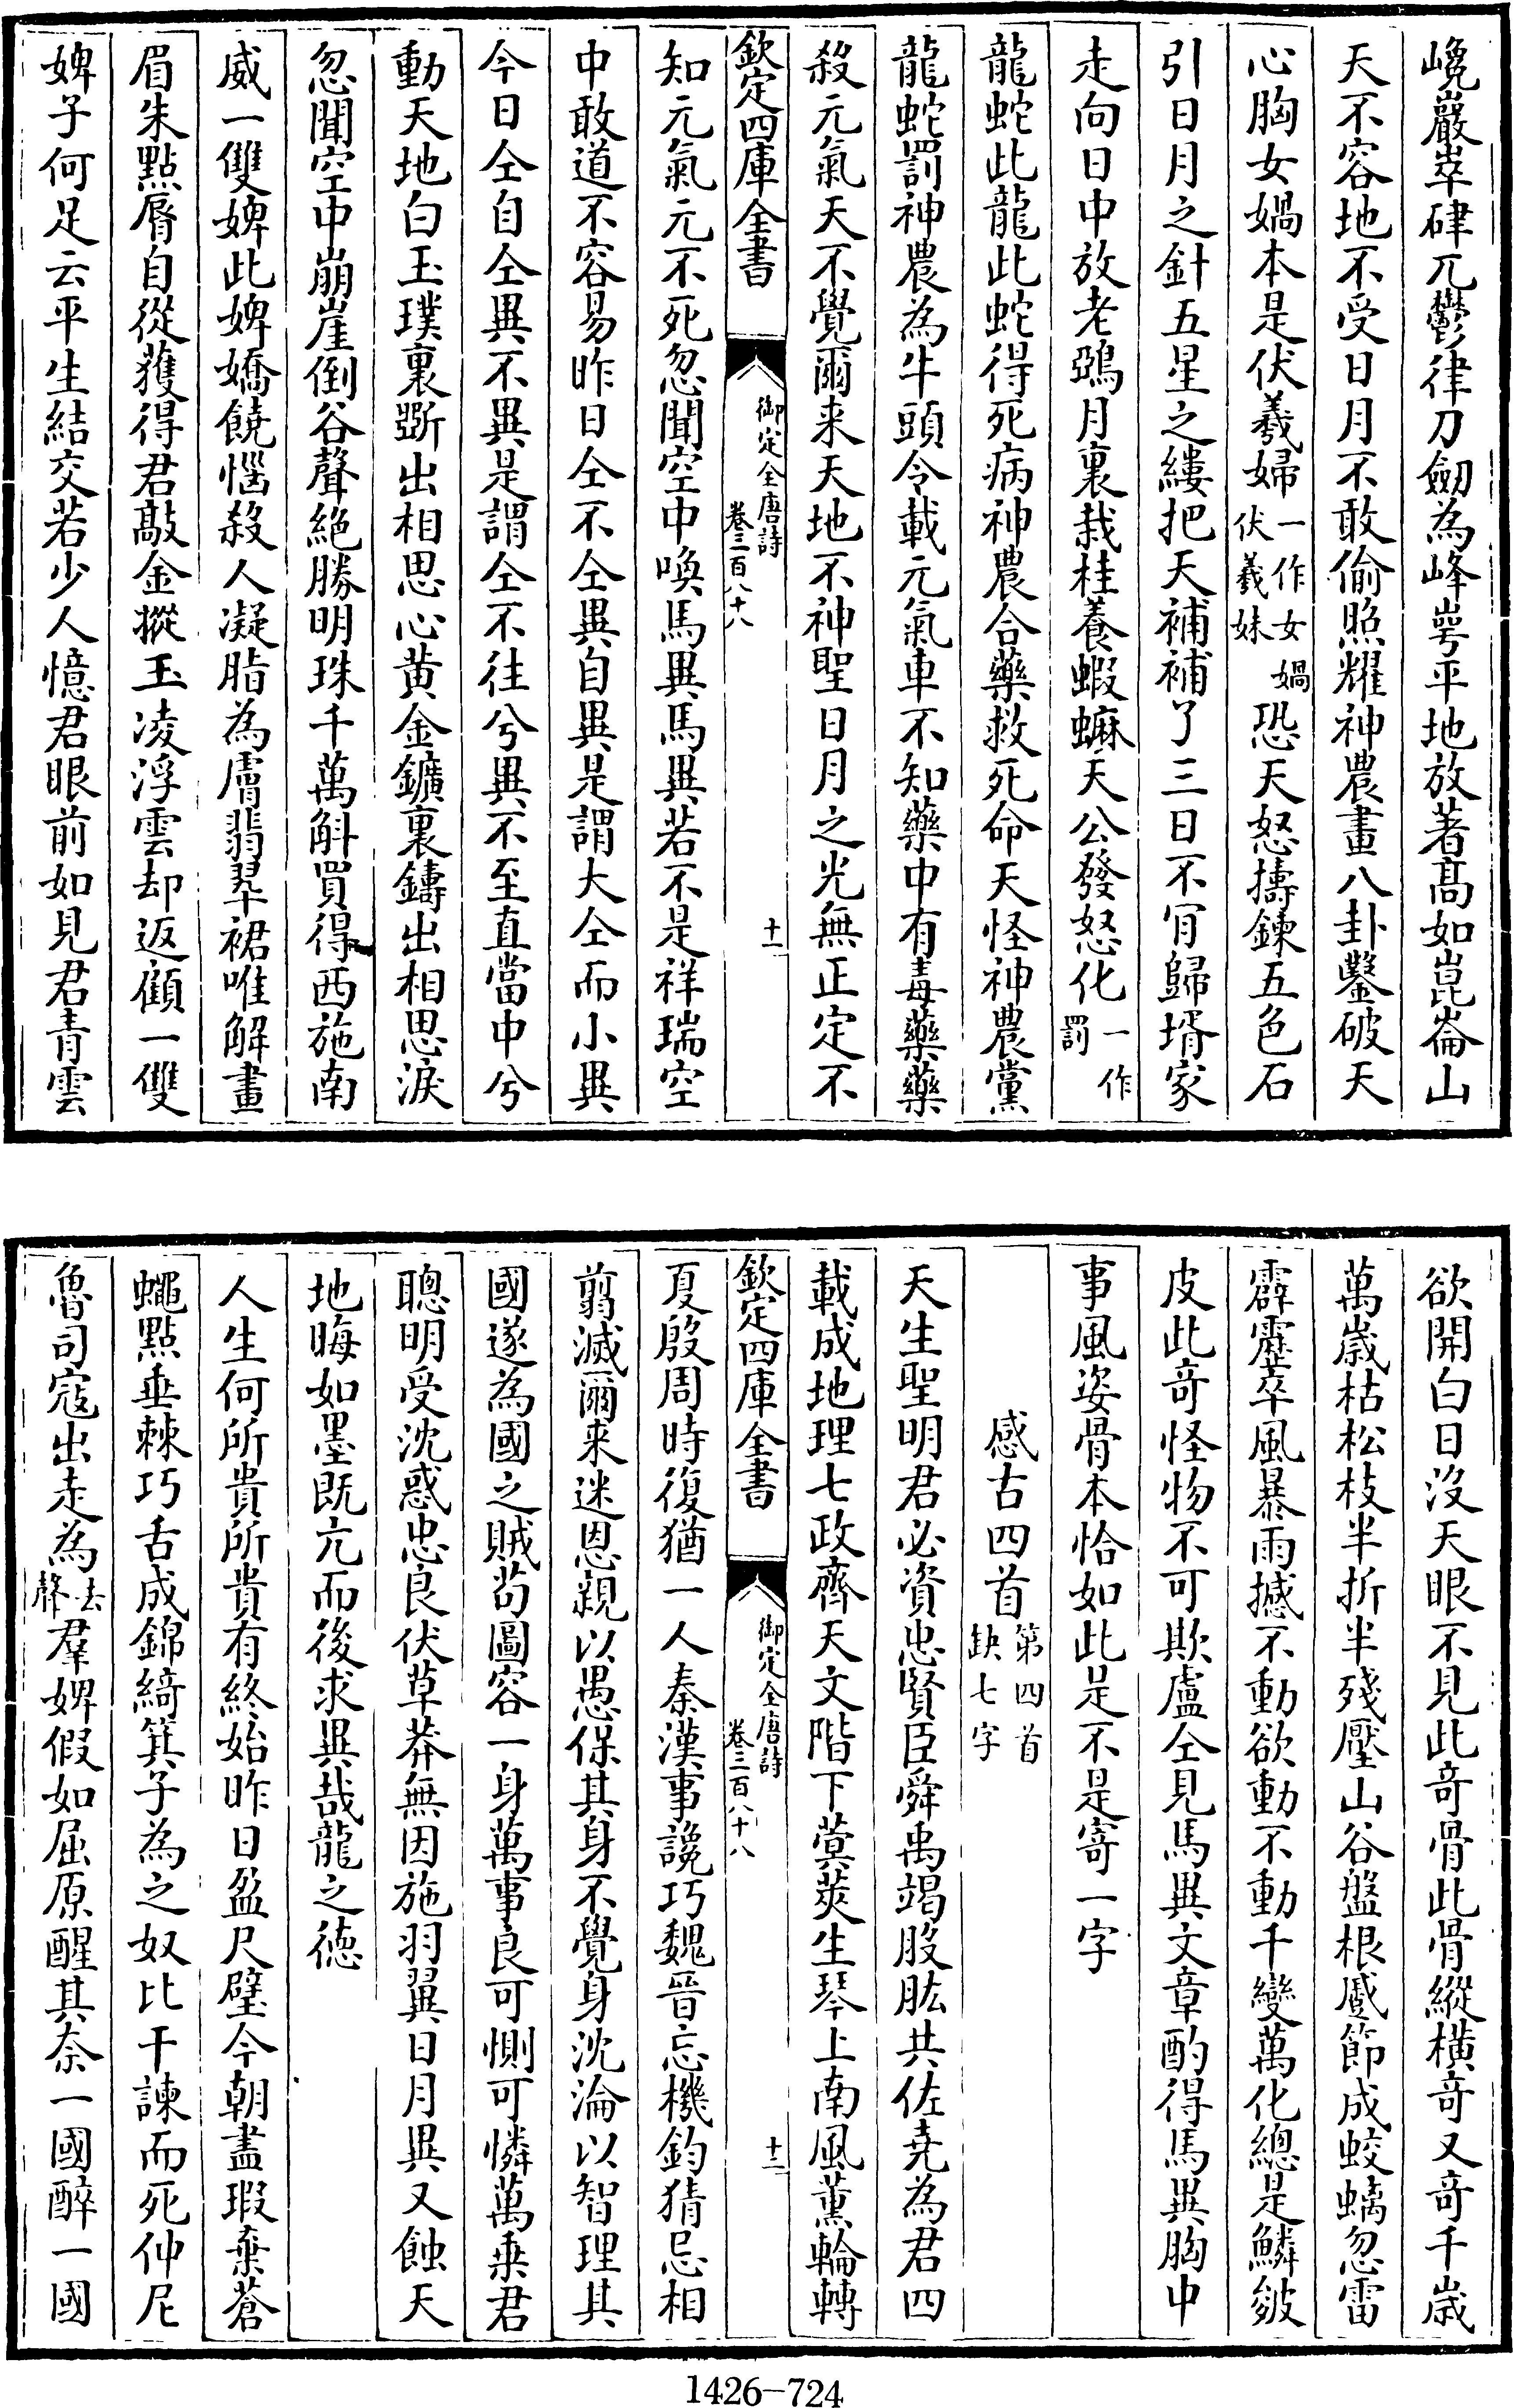 巉巖崒硉兀鬱律刀劒為峰崿平地放著髙如崑崙山
天不容地不受日月不敢偷照耀神農畫八卦鑿破天
心胸女媧本是伏羲婦一作女媧伏羲妹恐天怒擣鍊五色石
引日月之針五星之縷把天補補了三日不肎歸壻家
走向日中放老鵶月裏栽桂養蝦蟆天公發怒化一作罰
龍蛇此龍此蛇得死病神農合藥救死命天怪神農黨
龍蛇罰神農為牛頭令載元氣車不知藥中有毒藥藥
殺元氣天不覺爾来天地不神聖日月之光無正定不
欽定四庫全書 御定全唐詩 卷三百八十八 十一
知元氣元不死忽聞空中喚馬異馬異若不是祥瑞空
中敢道不容易昨日仝不仝異自異是謂大仝而小異
今日仝自仝異不異是謂仝不往兮異不至直當中兮
動天地白玉璞裏斲出相思心黄金鑛裏鑄出相思淚
忽聞空中崩崖倒谷聲絶勝明珠千萬斛買得西施南
威一雙婢此婢嬌饒惱殺人凝脂為膚翡翠裙唯解畫
眉朱點脣自從獲得君敲金摐玉凌浮雲却返顧一雙
婢子何足云平生結交若少人憶君眼前如見君青雲
欲開白日没天眼不見此奇骨此骨縱橫奇又奇千歳
萬歳枯松枝半折半殘壓山谷盤根蹙節成蛟螭忽雷
霹靂卒風暴雨撼不動欲動不動千變萬化總是鱗皴
皮此奇怪物不可欺盧仝見馬異文章酌得馬異胸中
事風姿骨本恰如此是不是寄一字
感古四首第四首缺七字
天生聖明君必資忠賢臣舜禹竭股肱共佐堯為君四
載成地理七政齊天文階下蓂莢生琴上南風薫輪轉
欽定四庫全書 御定全唐詩 卷三百八十八 十二
夏殷周時復猶一人秦漢事讒巧魏晉忘機鈞猜忌相
翦滅爾来迷恩親以愚保其身不覺身沈淪以智理其
國遂為國之賊苟圖容一身萬事良可惻可憐萬乗君
聰明受沈惑忠良伏草莽無因施羽翼日月異又蝕天
地晦如墨既亢而後求異哉龍之徳
人生何所貴所貴有終始昨日盈尺璧今朝盡瑕棄蒼
蠅點垂棘巧舌成錦綺箕子為之奴比干諫而死仲尼
魯司宼出走為去聲羣婢假如屈原醒其奈一國醉一國
1426-724